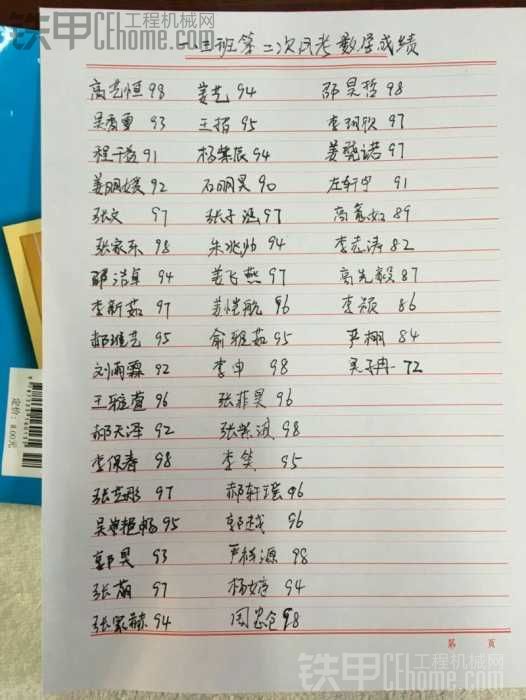 铁甲工程机械网
CeHome.com
一三班第二次月考数学成绩
高艺恒 98 姜艺 94 邵昊哲 98
吴秀重 93 王指 95 李珂欣 97
程千益 91 杨紫辰 94 姜晓诺 97
姜明媛 92 石明昊 90 左轩宁 91
张文 97 张子涵 97 高 如 89
张家乐 98 朱兆帅 94 李志涛 82
邵洁卓 94 姜飞燕 97 高先毅 87
李新茹 97 姜恺航 96 李颖 86
郝雅艺 95 俞雅茹 95 严栩 84
刘雨霖 92 李申 98 吴子冉 72
王雅萱 96 张菲昊 96
郝天泽 92 张紫淑 98
李保春 98 李笑 95
张艺那 97 郝轩瑶 96
吴 艳畅 95 郭越 96
郭昊 93 严 源 98
张萌 97 杨婷 94
张家赫 94 周宏仓 98
定价：8.00元
第 页
铁甲工程机械网
CeHome.com